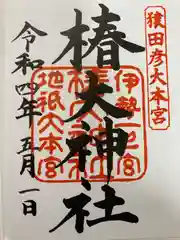 猿田彦大本宮
椿大神社
伊勢一宮
地祇大本宮
令和四年五月一日